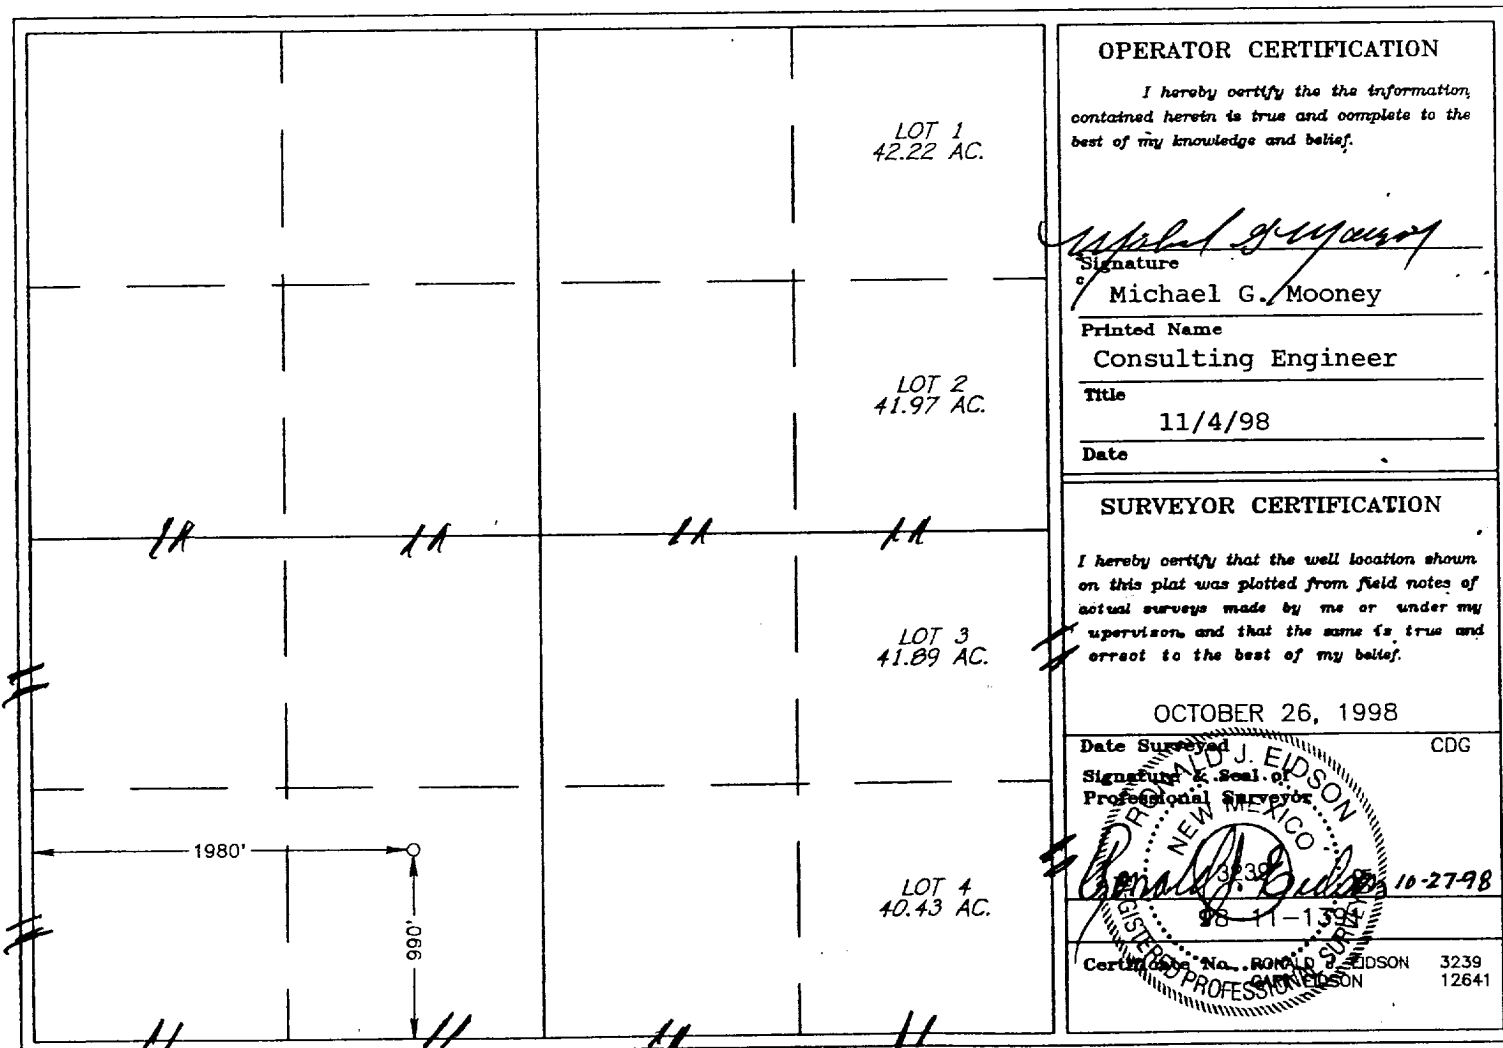 LOT 1
42.22 AC.
LOT 2
41.97 AC.
LOT 3
41.89 AC.
LOT 4
40.43 AC.
1980'
990'
OPERATOR CERTIFICATION
I hereby certify the the information
contained herein is true and complete to the
best of my knowledge and belief.
Signature
Michael G. Mooney
Printed Name
Consulting Engineer
Title
11/4/98
Date
SURVEYOR CERTIFICATION
I hereby certify that the well location shown
on this plat was plotted from field notes of
actual surveys made by me or under my
upervison, and that the same is true and
orrect to the best of my belief.
OCTOBER 26, 1998
Date Surveyed CDG
Signature & Seal of
Professional Surveyor
RONALD J. EIDSON
NEW MEXICO
3239
REGISTERED PROFESSIONAL SURVEYOR
Ronald J. Eidson 10-27-98
98-11-1391
Certificate No. RONALD J. EIDSON 3239
GARY EIDSON 12641